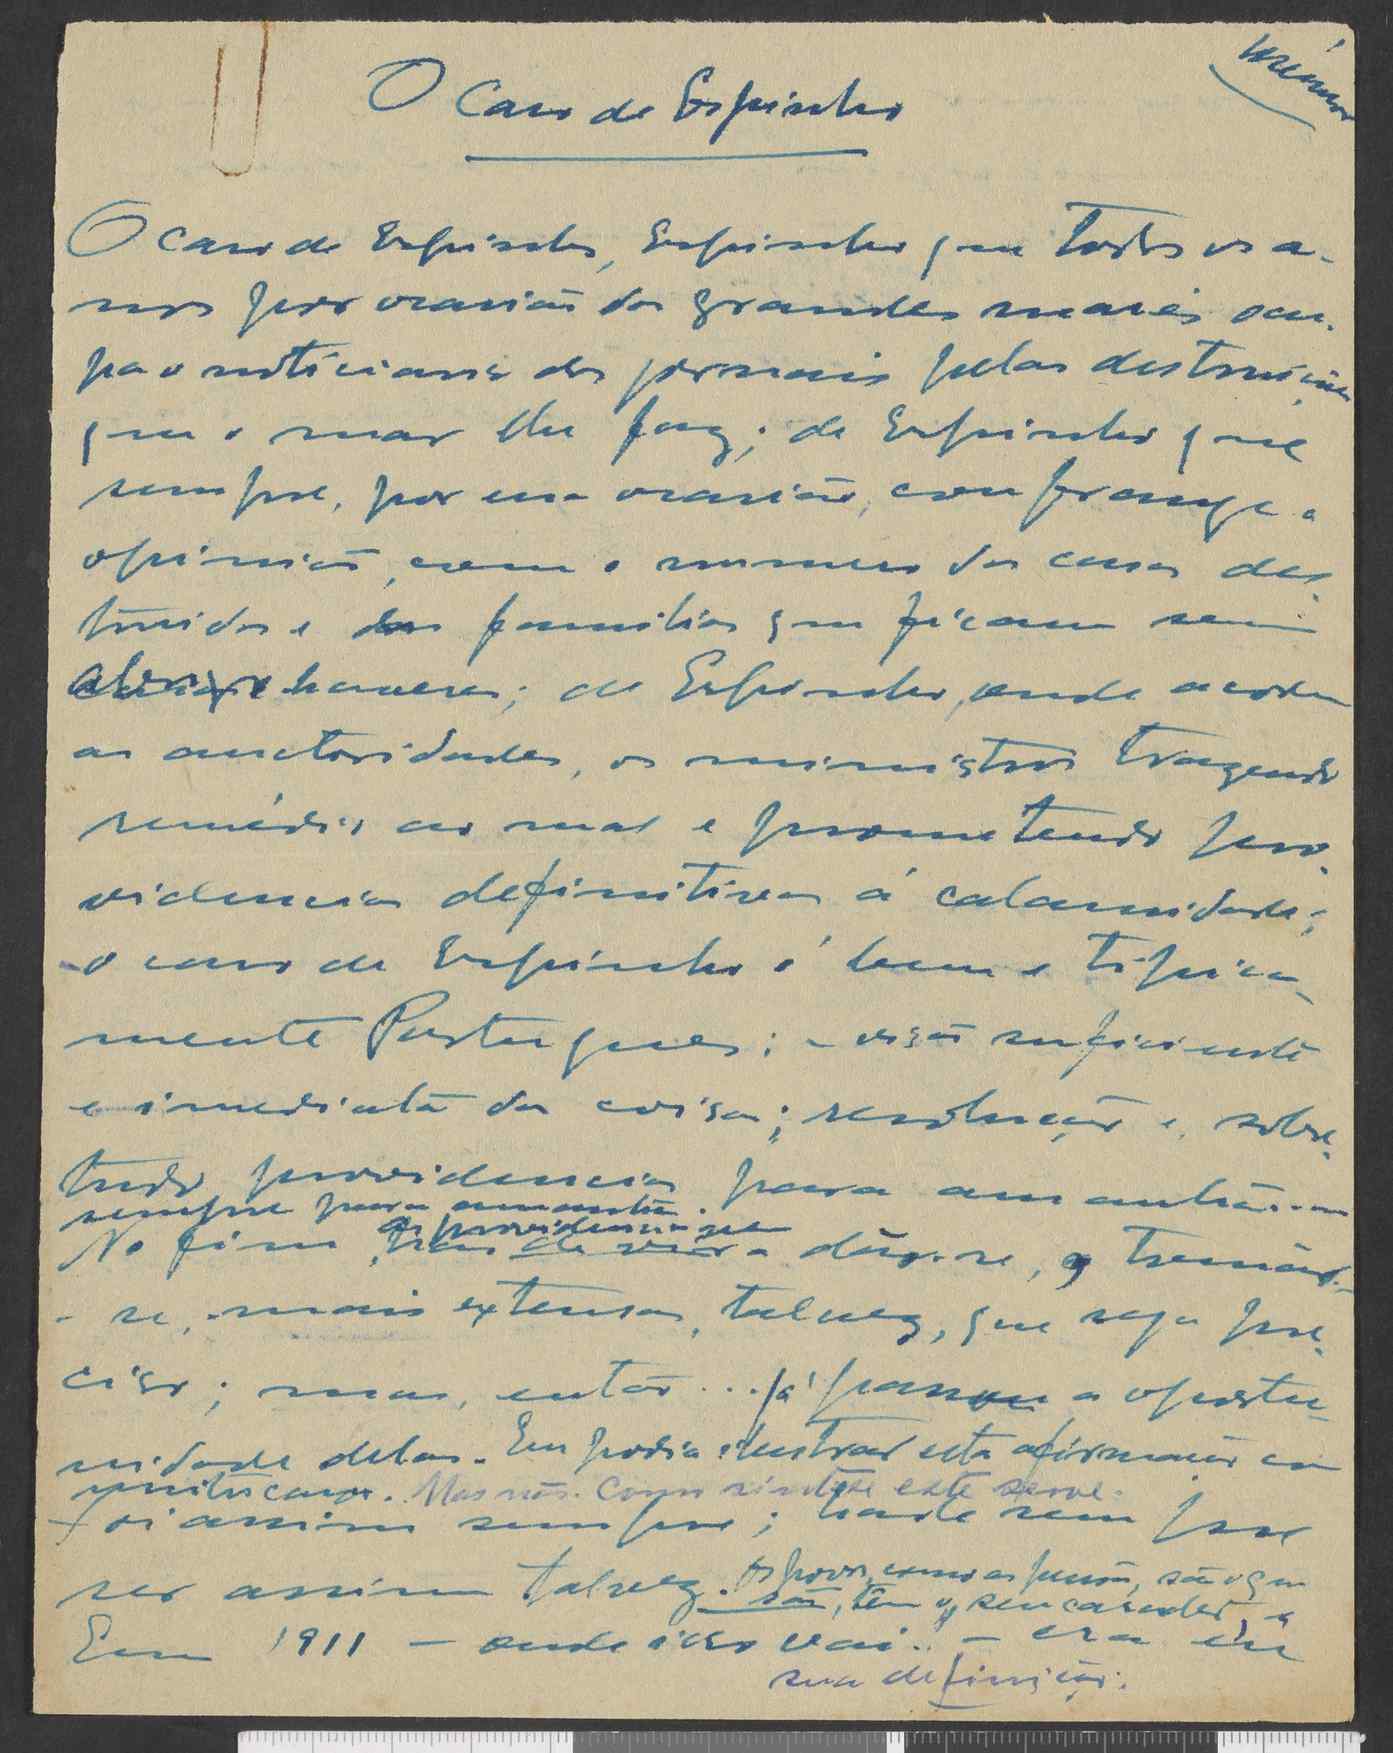 O Caso de Espinho
O caso de Espinho, Espinho que todos os a-
nos por ocasião das grandes marés ocu-
pa o noticiario dos jornais pelas destruições
que o mar lhe faz; de Espinho que
sempre, por essa ocasião, confrange a
opinião, com o numero das casas des-
truidas e das familias que ficam sem
abrigo e haveres; de Espinho, onde acodem
as auctoridades, os ministros trazendo
remédio ao mal e prometendo pro-
videncias definitivas á calamidade;
o caso de Espinho é bem e tipica-
mente Portugues: – visão suficiente
e imediata da coisa; resolução e, sobre-
tudo providencias para amanhã...
sempre para amanhã.
No fim, as providencias que
hão de vir dão-se, tomão-
-se, mais extensas, talvez, que seja pre-
ciso; mas, então... já passou a oportu-
nidade delas. Eu podia ilustrar esta afirmação com
muitos casos. Mas não. Como sintese este serve.
Foi assim sempre; hade sempre
ser assim talvez. Os povos, como as pessoas, são o que
são, têm o seu caracter, e
sua definição.
Em 1911 – onde isso vai.. – era eu